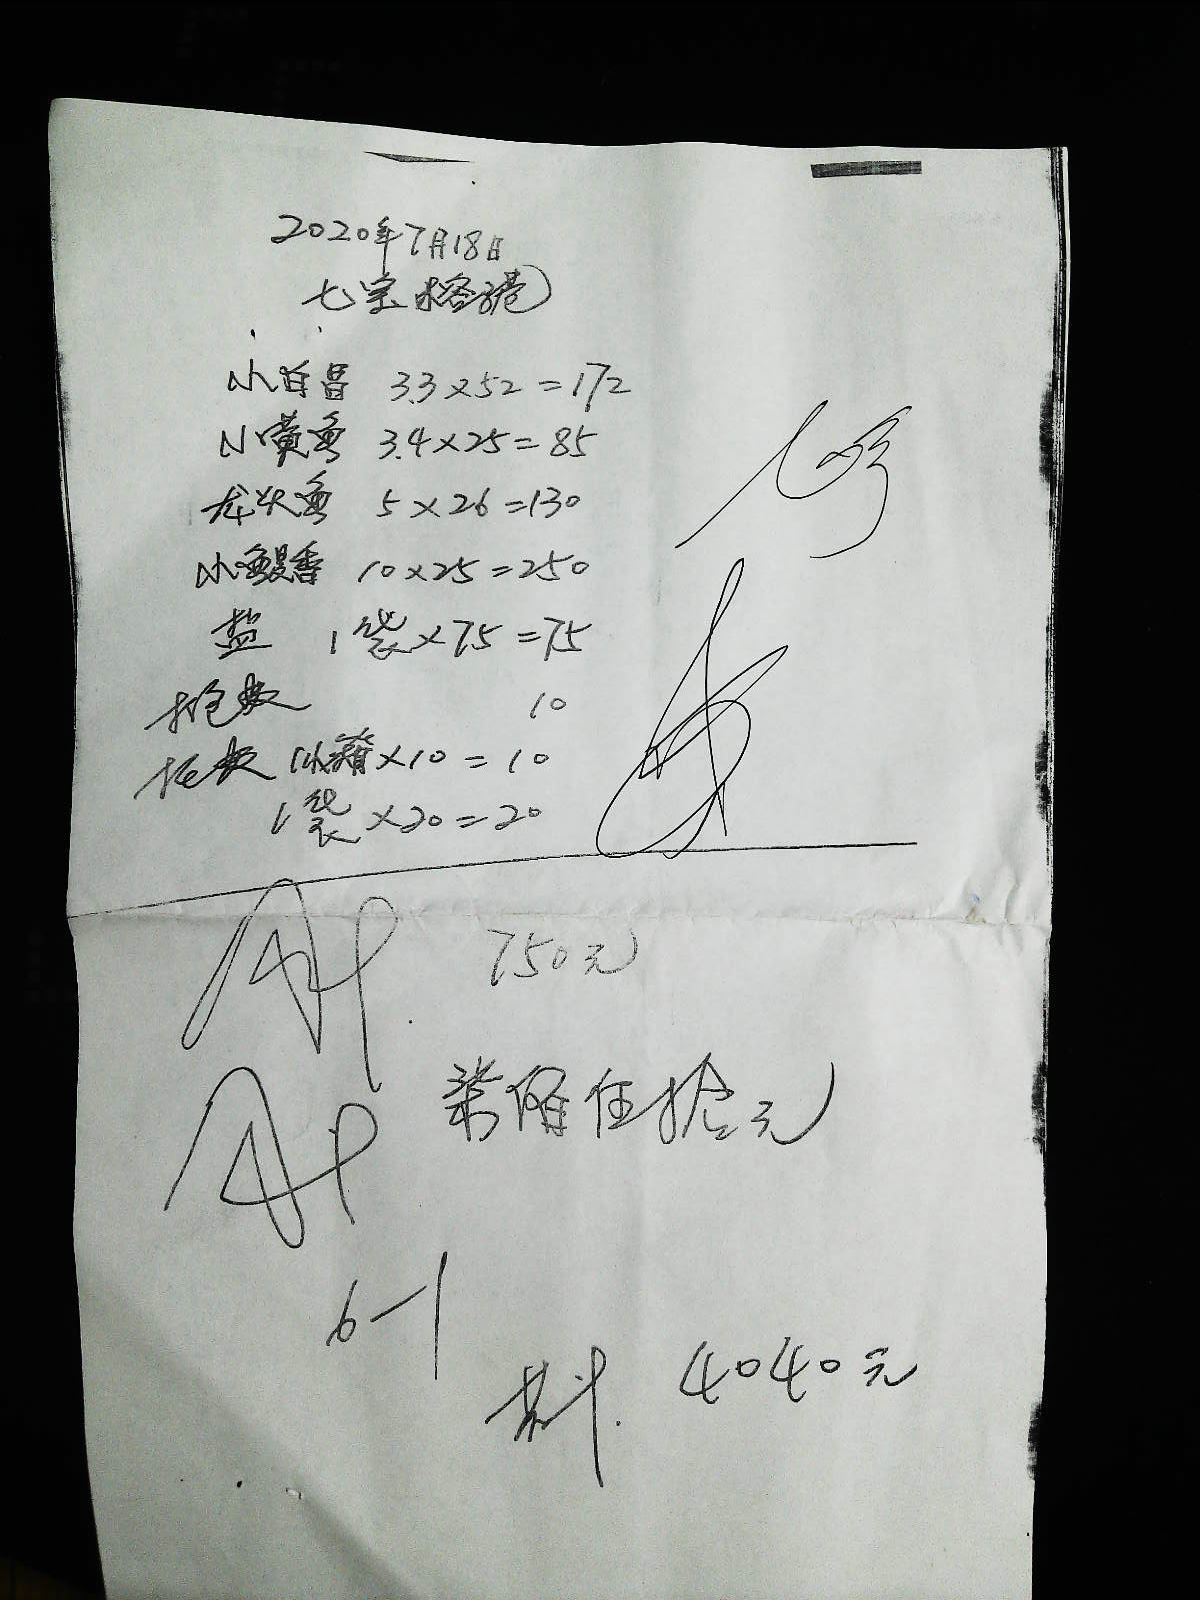 2020年7月18日
七宝榕港
小白昌 3.3×52=172
小黄鱼 3.4×25=85
龙头鱼 5×26=130
小鳗香 10×25=250
盐 1袋×75=75
10
1小箱×10=10
1袋×20=20
750元
柒佰伍拾元
6-1
4040元